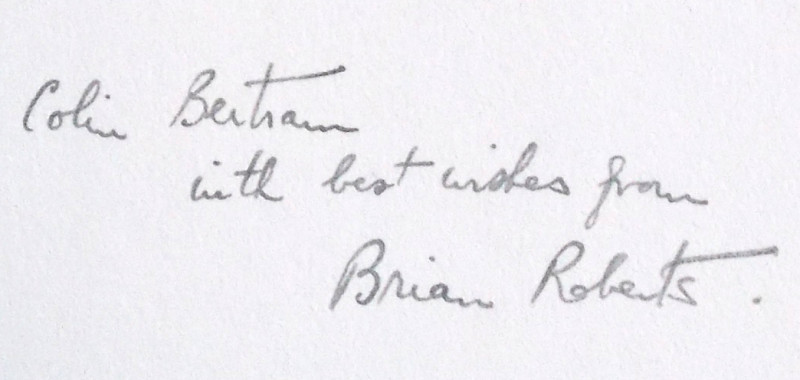 Colin Bertram
with best wishes from
Brian Roberts.